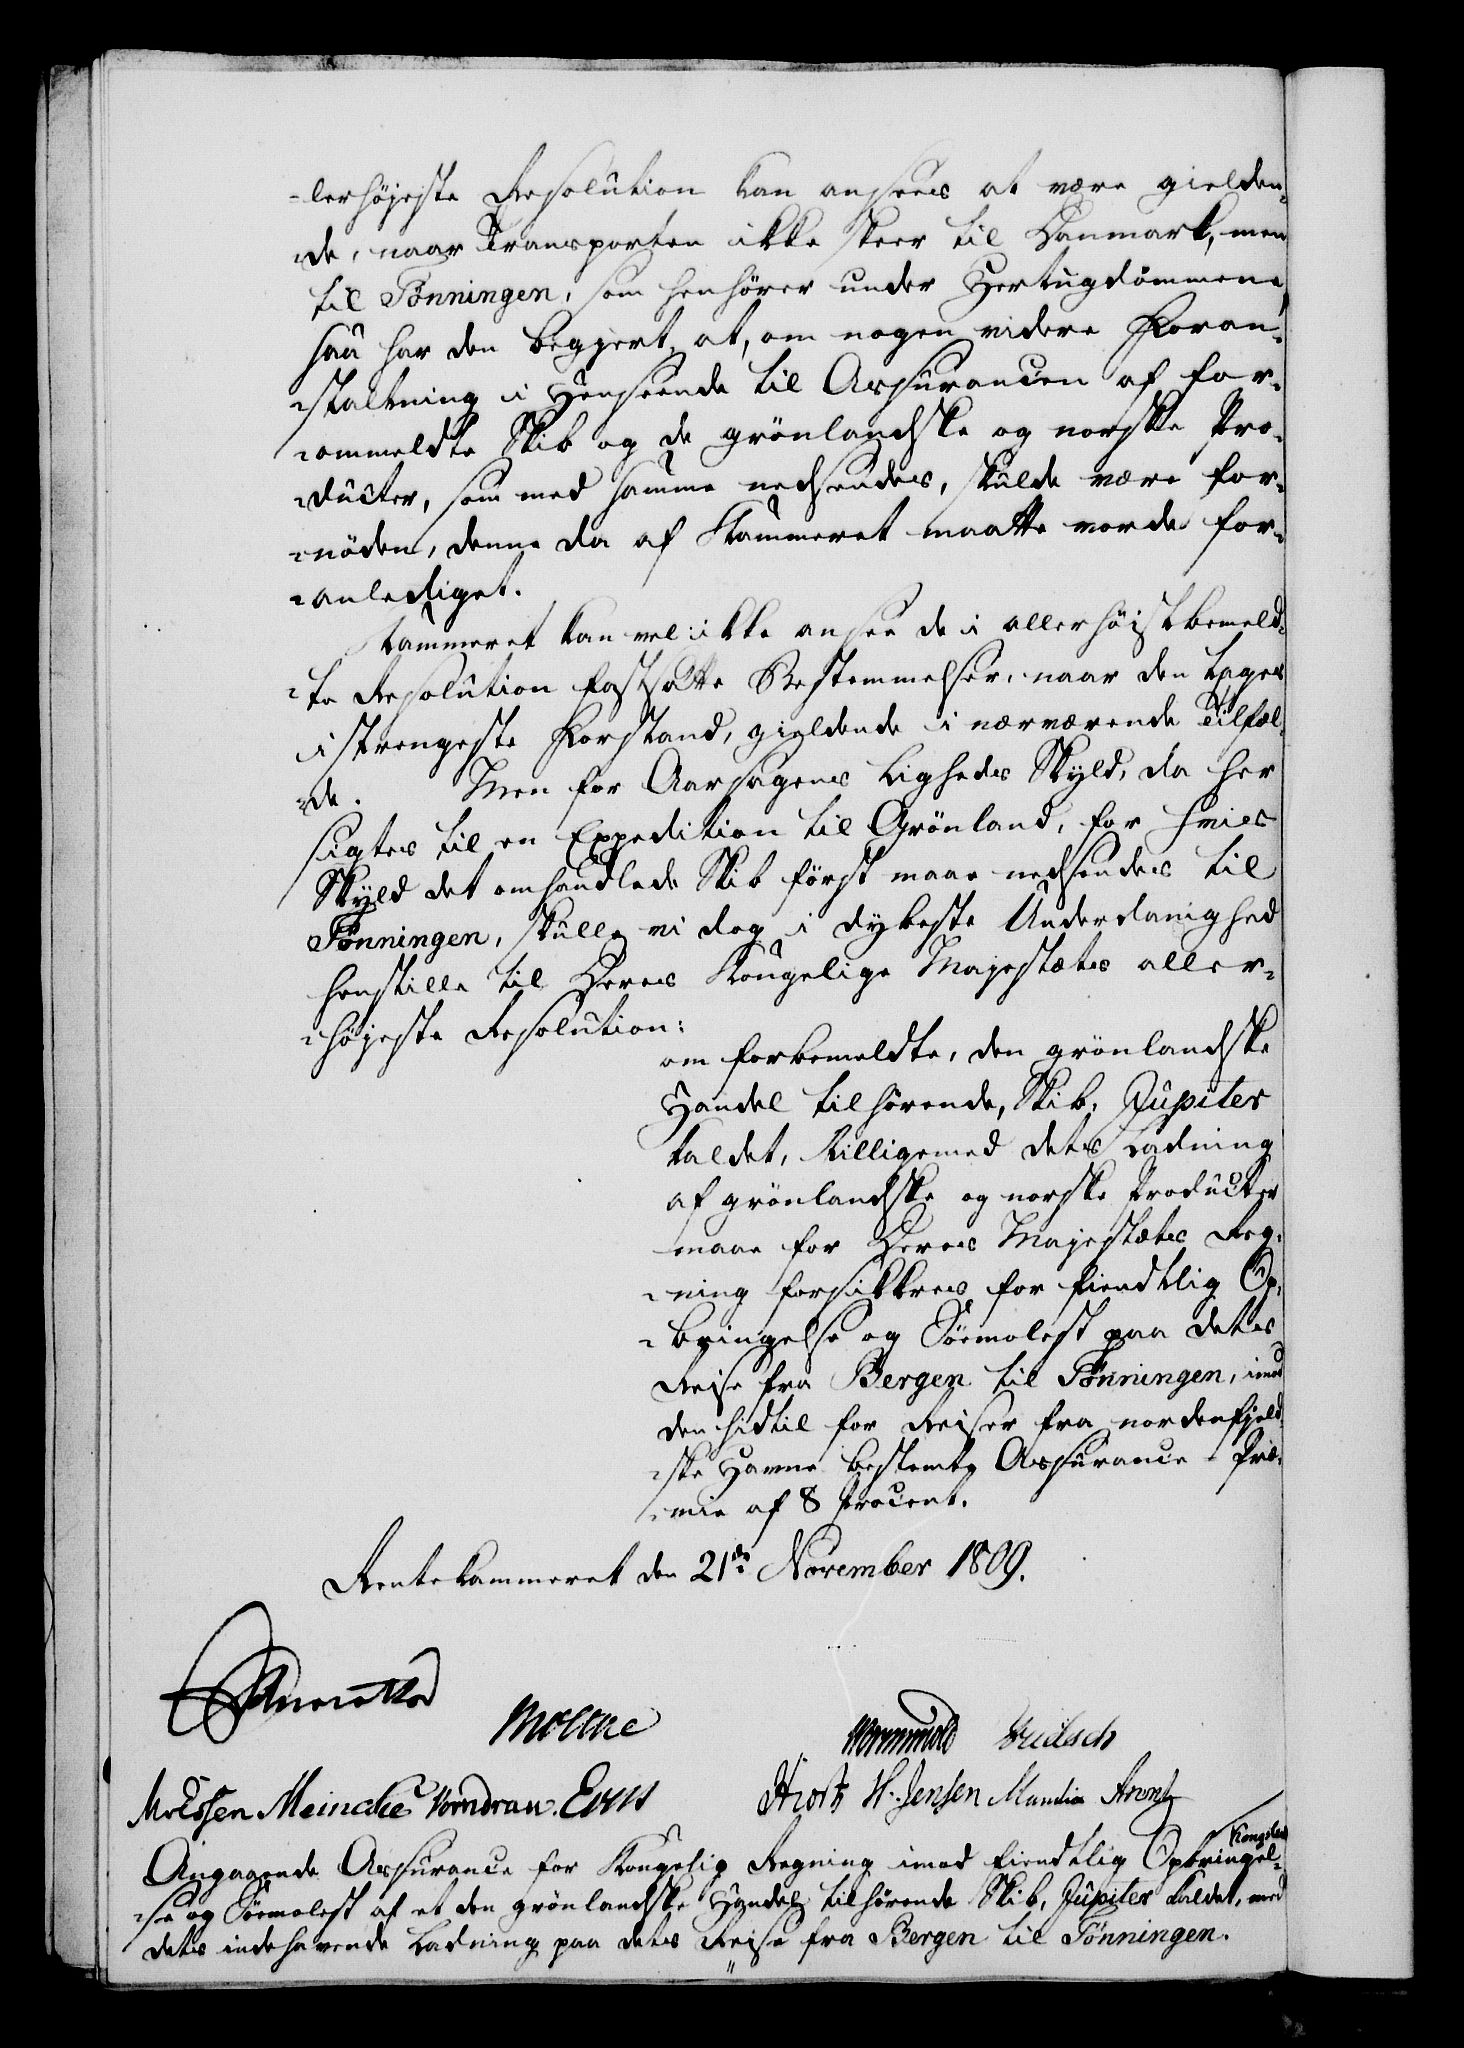 -lerhöjeste Resolution kan ansees at være gielden-
-de, naar Transporten ikke skeer til Danmark, men
til Tönningen, som henhörer under Hertugdömmene,
saa har den begjert, at, om nogen videre Foran-
-staltning i Henseende til Assurancen af for-
-ommeldte Skib og de grönlandske og norske Pro-
-ducter, som med samme nedsendes, skulde være for-
-nöden, denne da af Kammeret maatte vorde for-
-anlediget.
Kammeret kan vel ikke ansee de i allerhöistbemeld-
-te Resolution fastsatte Bestemmelser, naar den tages
i strengeste Forstand, gieldende i nærværende Tilfæl-
-de. Men for Aarsagens Ligheds Skyld, da her
sigtes til en Expedition til Grönland, for hvis
Skyld det omhandlede Skib först maae nedsendes til
Tönningen, skulle vi dog i dybeste Underdanighed
henstille til Deres Kongelige Majestæts aller-
-höjeste Resolution:
om forbemeldte, den grönlandske
Handel tilhörende, Skib, Jupiter
kaldet, tilligemed dets Ladning
af grönlandske og norske Producter
maae for Deres Majestæts Reg-
-ning forsikkres for fiendtlig Op-
-bringelse og Söemolest paa dets
Reise fra Bergen til Tönningen, imod
den hidtil for Reiser fra nordenfjeld-
-ske Havne bestemte Assurance-Præ-
-mie af 8 Procent.
Rentekammeret den 21de November 1809.
Moltke Wormskiold
Meincke Vorndran Hiort H. Jensen
Angaaende Assurance for Kongelig Regning imod fiendtlig Opbringel-
-se og Söemolest af et den grönlandske Handel tilhörende Skib, Jupiter kaldet, med
dets indehavende Ladning paa dets Reise fra Bergen til Tönningen.